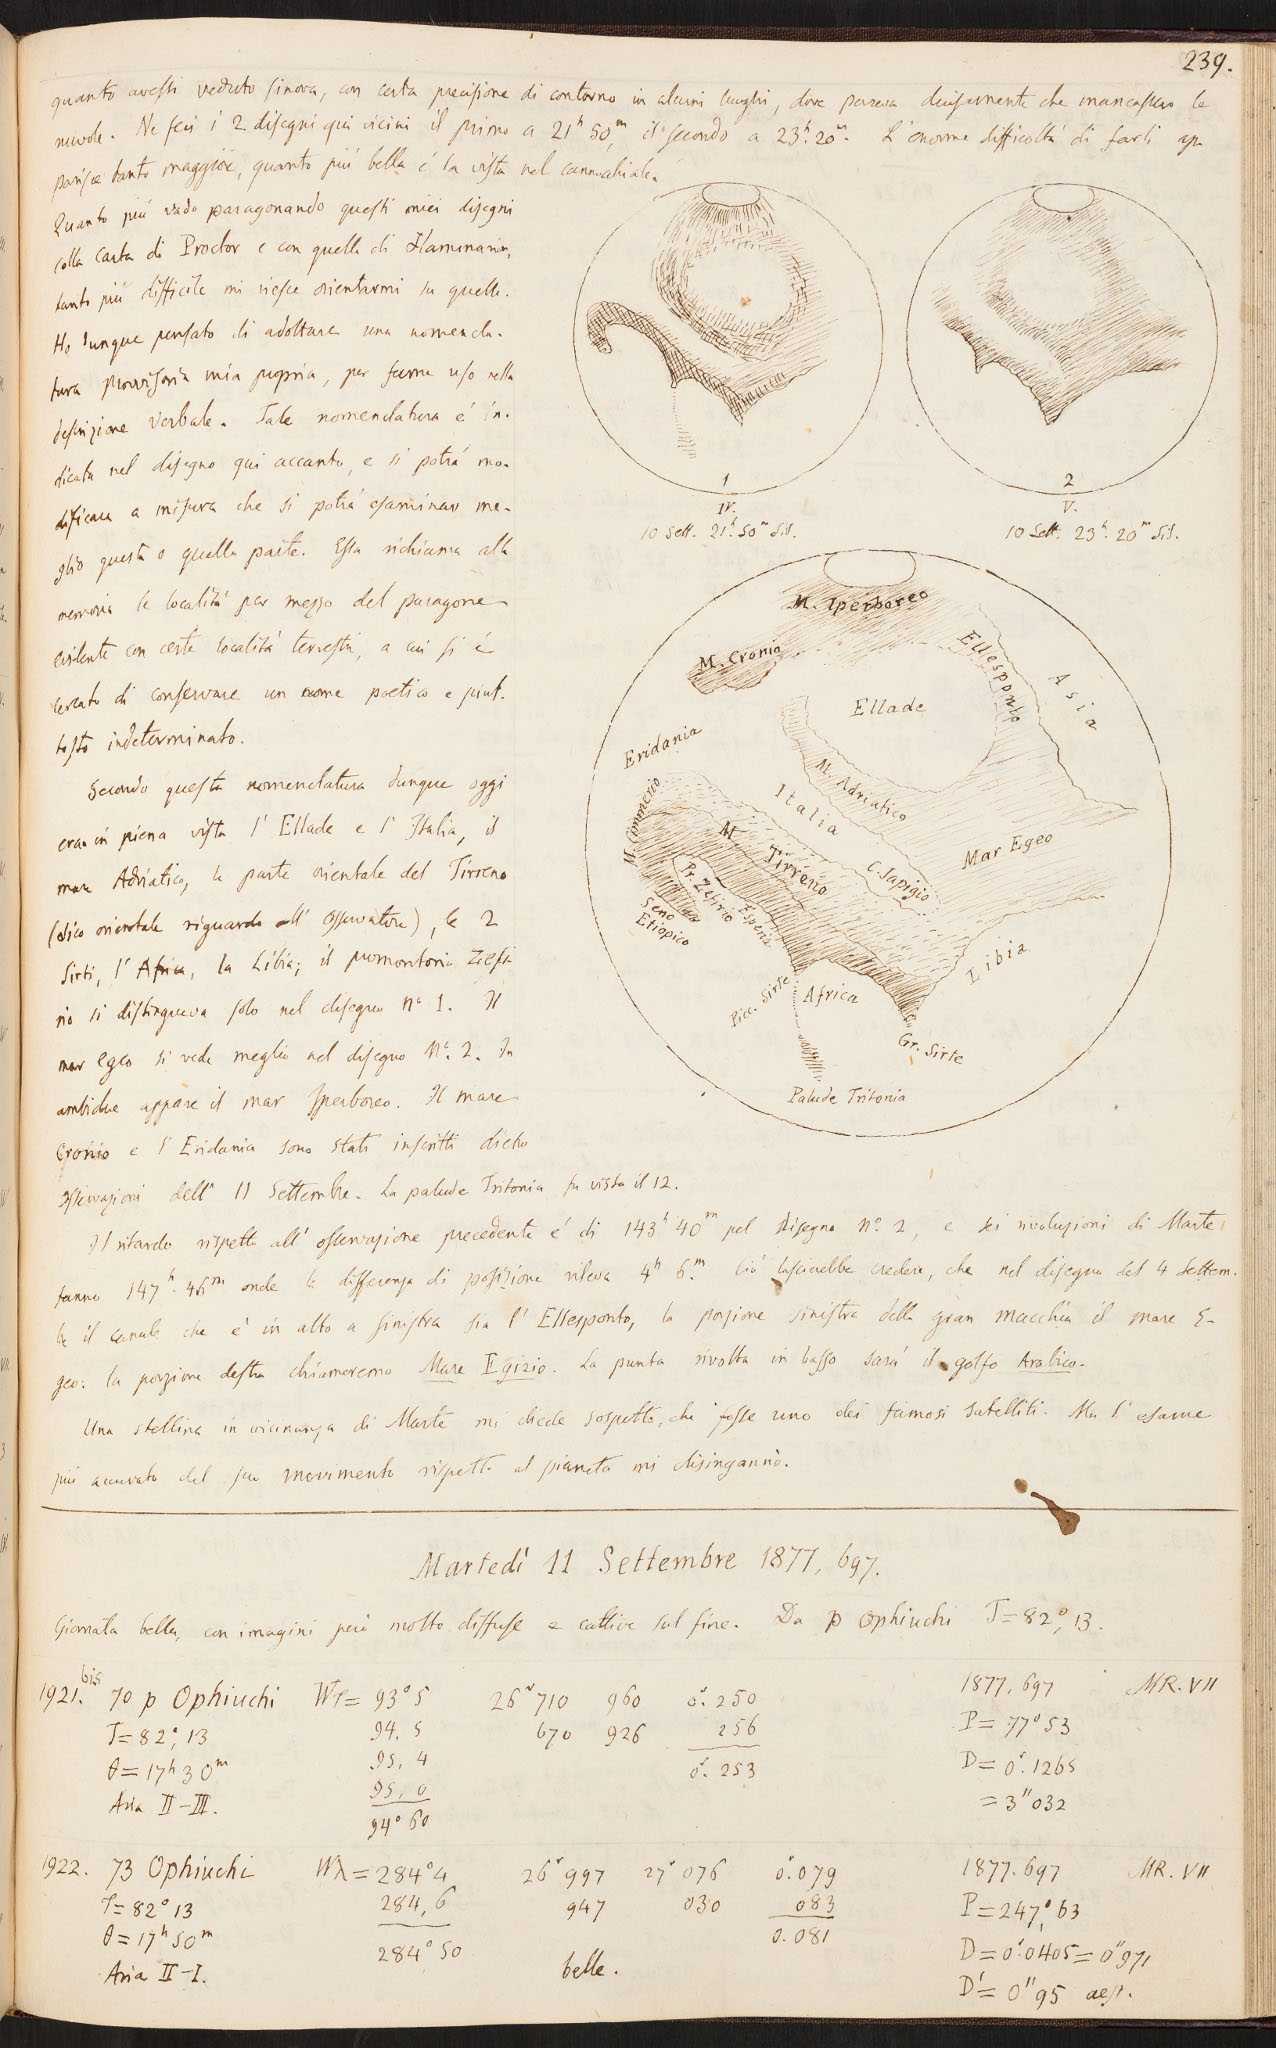 239.
quanto avessi veduto finora, con certa precisione di contorno in alcuni luoghi, dove pareva decisamente che mancassero le
nuvole. Ne feci i 2 disegni qui vicini il primo a 21h 50m, il secondo a 23h.20m. L'enorme difficoltà di farli ap
parisce tanto maggiore, quanto più bella è la vista nel cannochiale.
Quanto più vado paragonando questi miei disegni
colla Carta di Proctor e con quella di Flammarion,
tanto più difficile mi riesce orientarmi su quelle.
Ho dunque pensato di adottare una nomencla-
tura provvisoria mia propria, per farne uso nella
descrizione verbale. Tale nomenclatura è in-
dicata nel disegno qui accanto, e si potrà mo-
dificare a misura che si potrà esaminar me-
glio questa o quella parte. Essa richiama alla
memoria le località per mezzo del paragone
evidente con certe località terrestri, a cui si è
cercato di conservare un nome poetico e piut-
tosto indeterminato.
Secondo questa nomenclatura dunque oggi
era in piena vista l'Ellade e l'Italia, il
mare Adriatico, la parte orientale del Tirreno
(dico orientale riguardo all'osservatore), le 2
Sirti, l'Africa, la Libia; il promontorio Zefi
rio si distingueva solo nel disegno No 1. Il
mar Egeo si vede meglio nel disegno No. 2. In
ambidue appare il mar Iperboreo. Il mare
Cronio e l'Eridania sono stati inscritti dietro
osservazioni dell' 11 Settembre. La palude Tritonia fu vista il 12.
1
IV.
10 Sett. 21h.50m Sid.
2
V.
10 Sett. 23h.20m Sid.
M. Iperboreo
M. Cronio
Ellesponto
Asia
Ellade
Eridania
M. Cimmerio
M. Adriatico
Italia
M. Tirreno
Mar Egeo
C. Japigio
Pr. Zefirio
Esperia
Seno
Etiopico
Libia
Picc. Sirte
Africa
Gr. Sirte
Palude Tritonia
Il ritardo rispetto all'osservazione precedente è di 143h 40m pel disegno No. 2, e sei rivoluzioni di Marte
fanno 147h.46m onde la differenza di posizione rileva 4h 6m. Ciò lascierebbe credere, che nel disegno del 4 Settem-
bre il canale che è in alto a sinistra sia l'Ellesponto, la porzione sinistra della gran macchia il mare E-
geo: la porzione destra chiameremo Mare Egizio. La punta rivolta in basso sarà il golfo Arabico.
Una stellina in vicinanza di Marte mi diede sospetto, che fosse uno dei famosi satelliti. Ma l'esame
più accurato del suo movimento rispetto al pianeta mi disingannò.
Martedì 11 Settembre 1877,697.
Giornata bella, con imagini però molto diffuse e cattive sul fine. Da p Ophiuchi T=82°,13.
1921.bis 70 p Ophiuchi Wp= 93°5 26r710 960 0r.250 1877.697 MR.VII
T=82°,13 94.5 670 926 256 P= 77°53
θ=17h30m 95,4 0r.253 D=0r.1265
Aria II-III. 95,0 =3"032
94°60
1922. 73 Ophiuchi Wλ=284°4 26r997 27r076 0r.079 1877.697 MR.VII
T=82°13 284,6 947 030 083 P=247°,63
θ=17h50m 284°50 0.081 D=0r.0405=0"971
Aria II-I. belle. D'=0"95 aest.